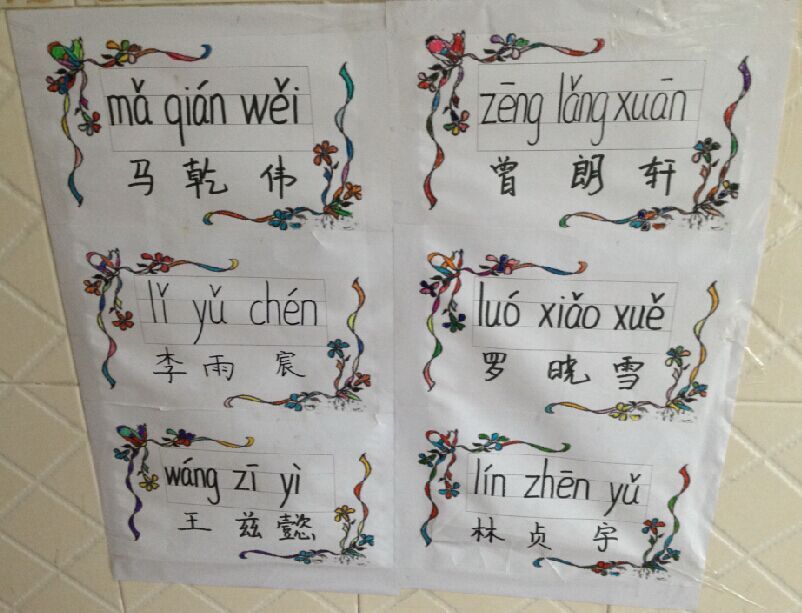 mǎ qián wěi
马乾伟
zēng lǎng xuān
曾朗轩
lǐ yǔ chén
李雨宸
luó xiǎo xuě
罗晓雪
wáng zī yì
王兹懿
lín zhēn yǔ
林贞宇